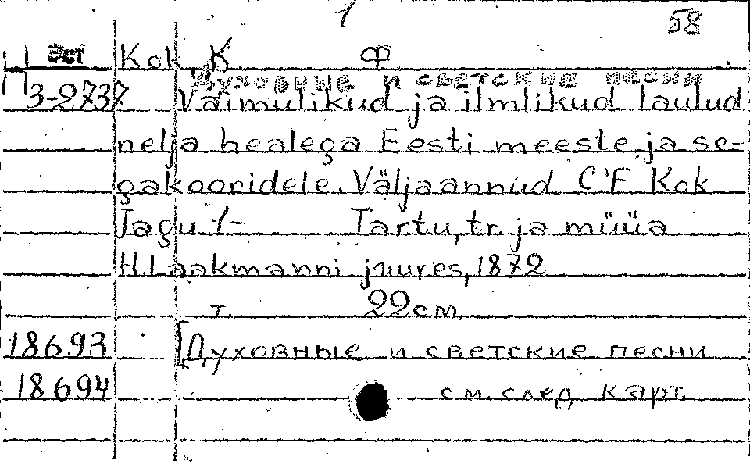 1 58
Эст Kok K Ф
Духовные и светские песни
3-2737 Vaimulikud ja ilmlikud laulud
nelja healega Eesti meeste ja se-
gakooridele. Väljaannud C F Kok
Jagu 1- Tartu, tr. ja müüa
H Laakmanni juures, 1872
т. 22 см.
18693 [Духовные и светские песни
18694 см. след карт.